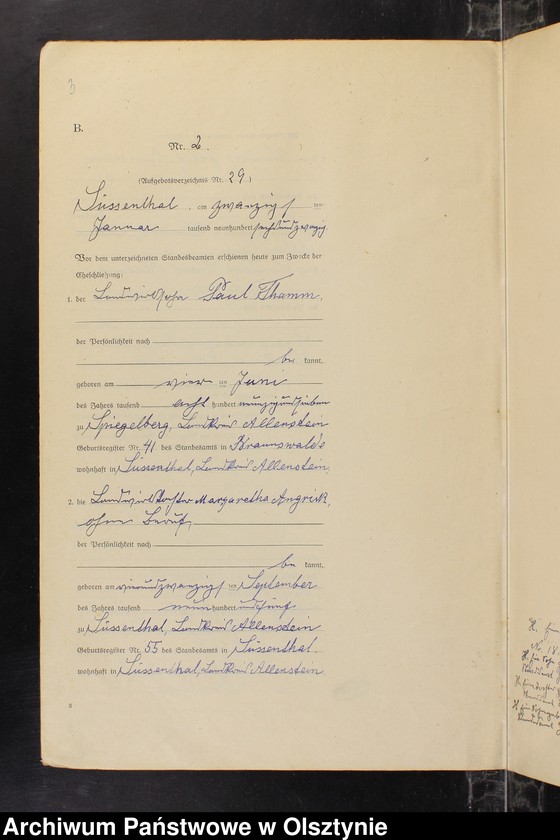 3
B.
Nr. 2.
(Aufgebotsverzeichnis Nr. 29.)
Süssenthal, am zwanzigsten
Januar tausend neunhundert sechsundzwanzig
Vor dem unterzeichneten Standesbeamten erschienen heute zum Zwecke der
Eheschließung:
1. der Landwirtssohn Paul Thamm,
der Persönlichkeit nach
be kannt,
geboren am vierten Juni
des Jahres tausend acht hundert neunzigundsieben
zu Spiegelberg, Landkreis Allenstein
Geburtsregister Nr. 41 des Standesamts in Braunswalde
wohnhaft in Süssenthal, Landkreis Allenstein,
2. die Landwirtstochter Margaretha Angrick,
ohne Beruf,
der Persönlichkeit nach
be kannt,
geboren am vierundzwanzigsten September
des Jahres tausend neun hundert undfünf
zu Süssenthal, Landkreis Allenstein
Geburtsregister Nr. 55 des Standesamts in Süssenthal
wohnhaft in Süssenthal, Landkreis Allenstein
Archiwum Państwowe w Olsztynie